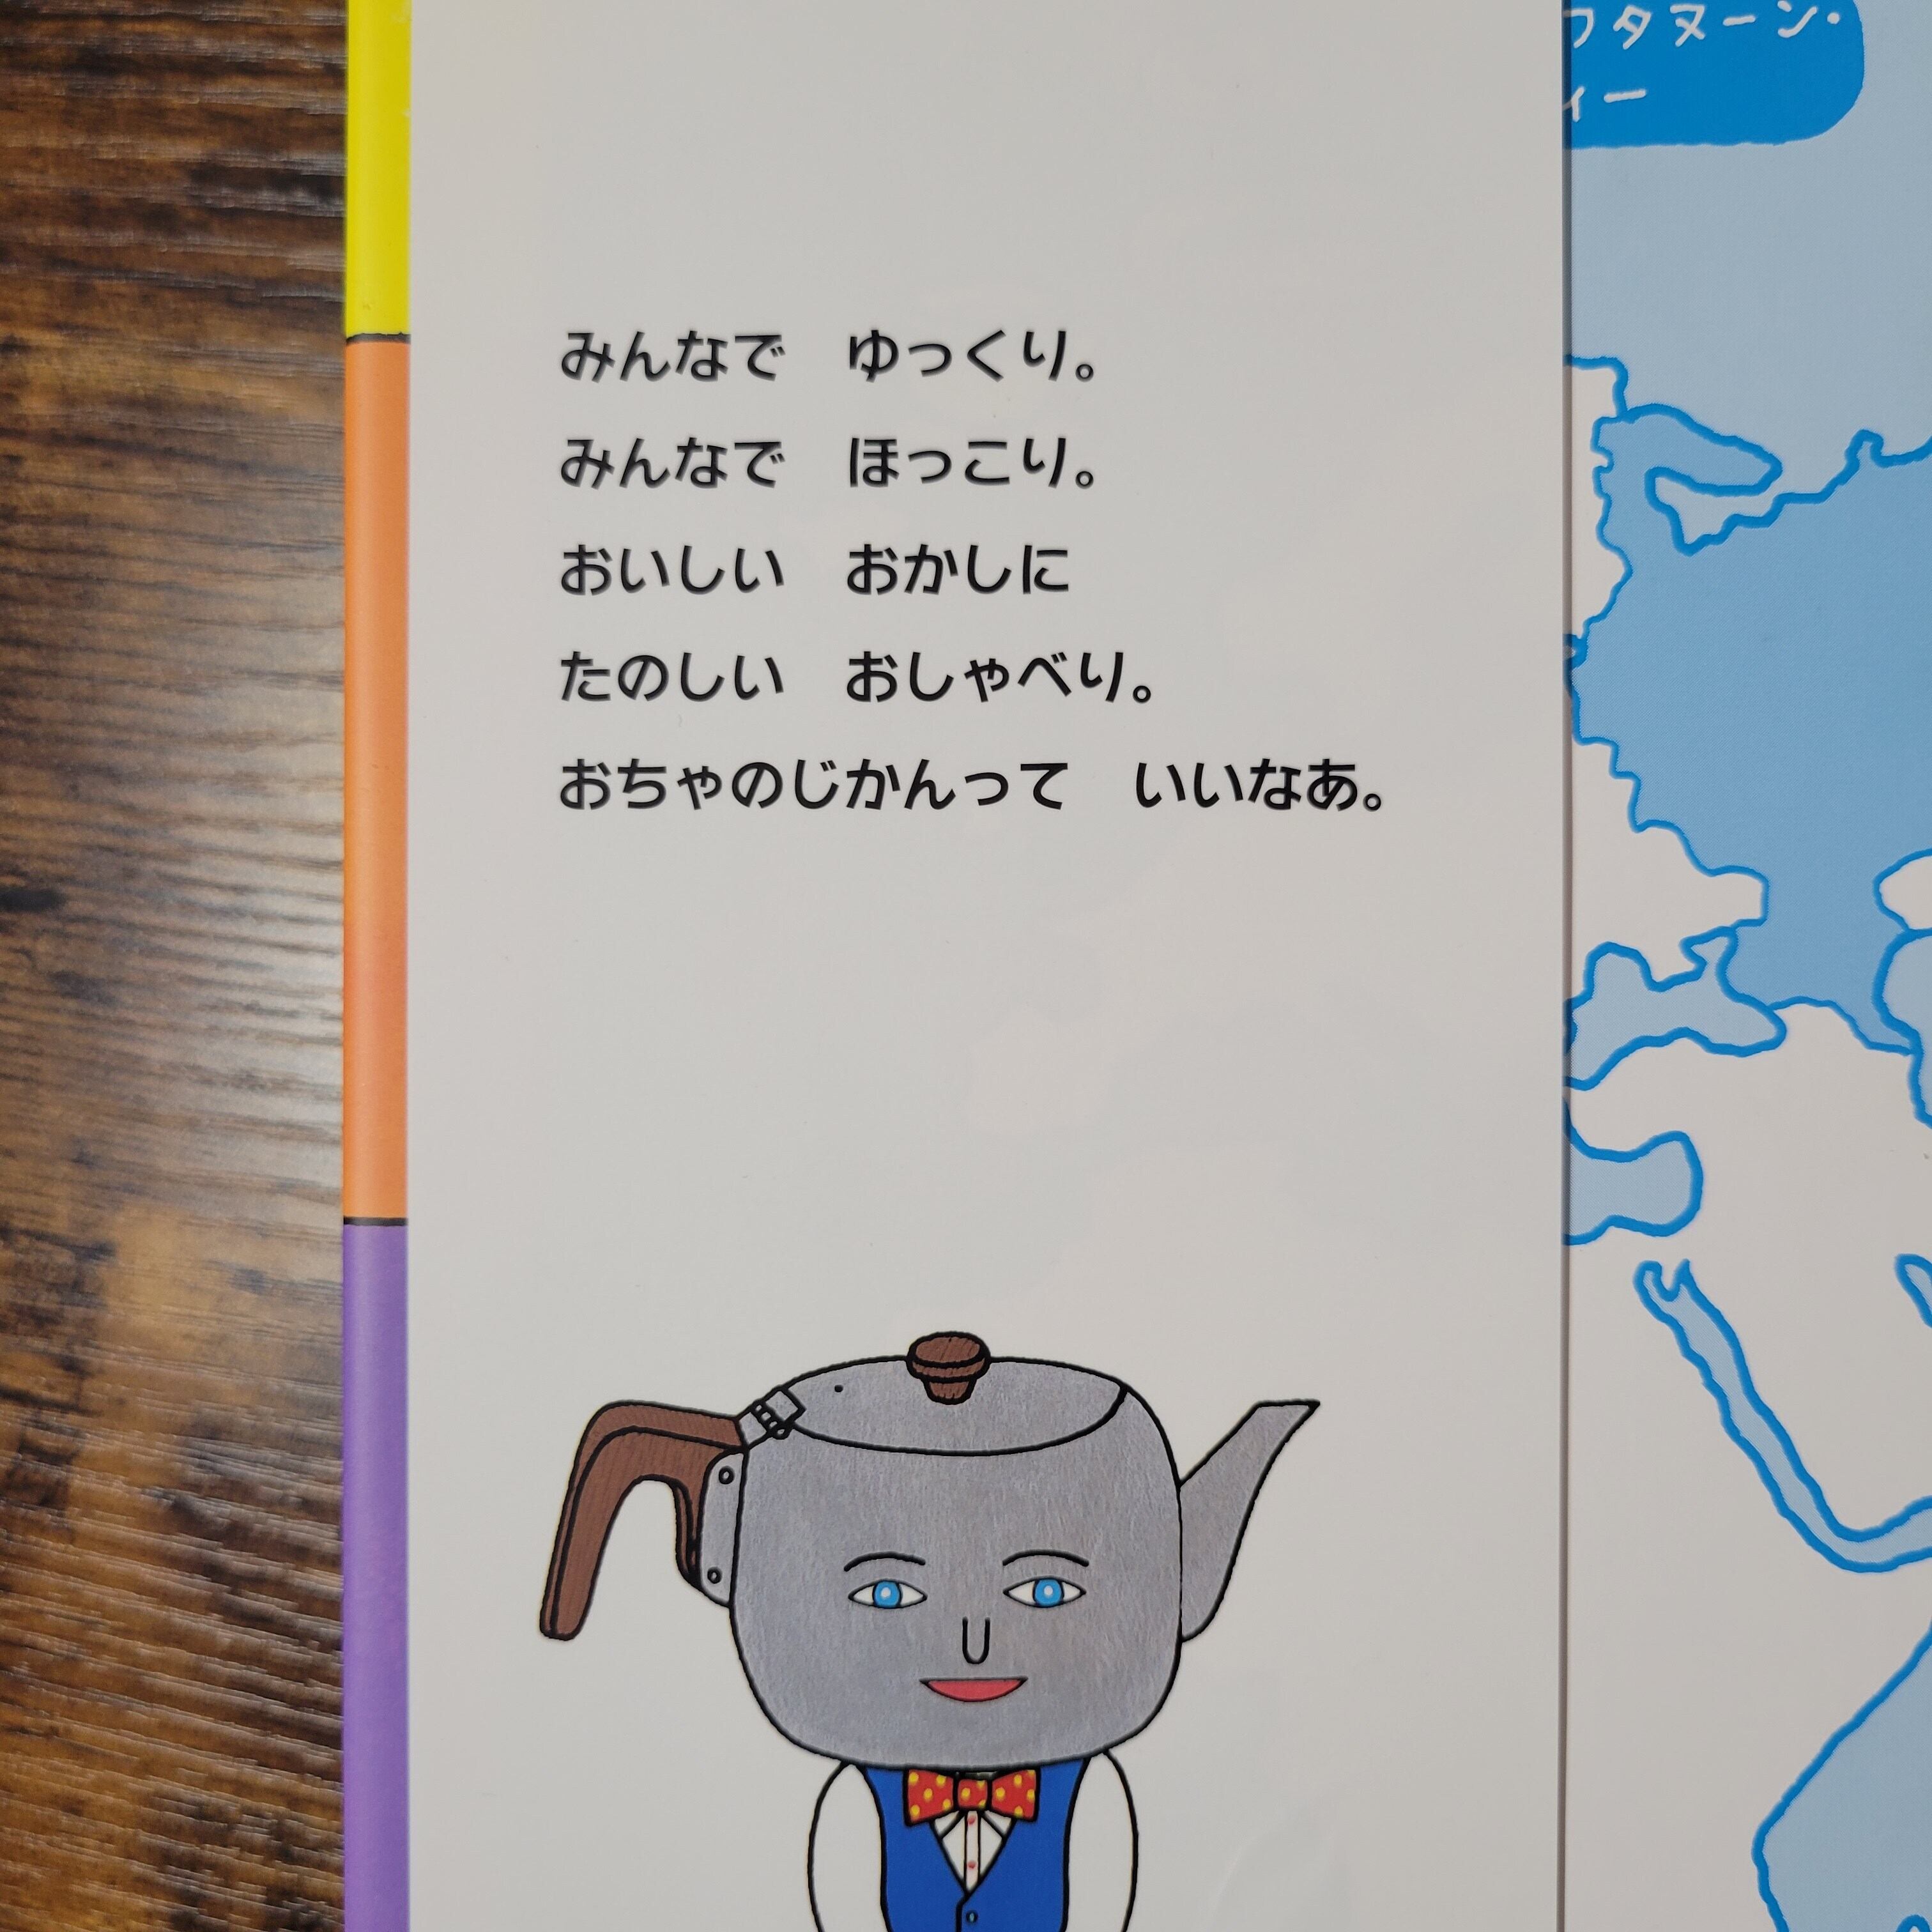 みんなで　ゆっくり。
みんなで　ほっこり。
おいしい　おかしに
たのしい　おしゃべり。
おちゃのじかんって　いいなあ。
フタヌーン・
ィー